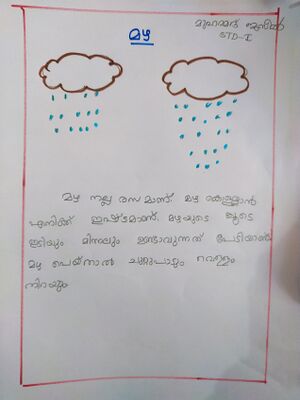 മുഹമ്മദ്
STD-I
മഴ
മഴ നല്ല രസമാണ്. മഴ കൊള്ളാൻ
എനിക്ക് ഇഷ്ടമാണ്. മഴയുടെ കൂടെ
ഇടിയും മിന്നലും ഉണ്ടാവുന്നത് പേടിയാണ്.
മഴ പെയ്താൽ ചുറ്റുപാടും വെള്ളം
നിറയും